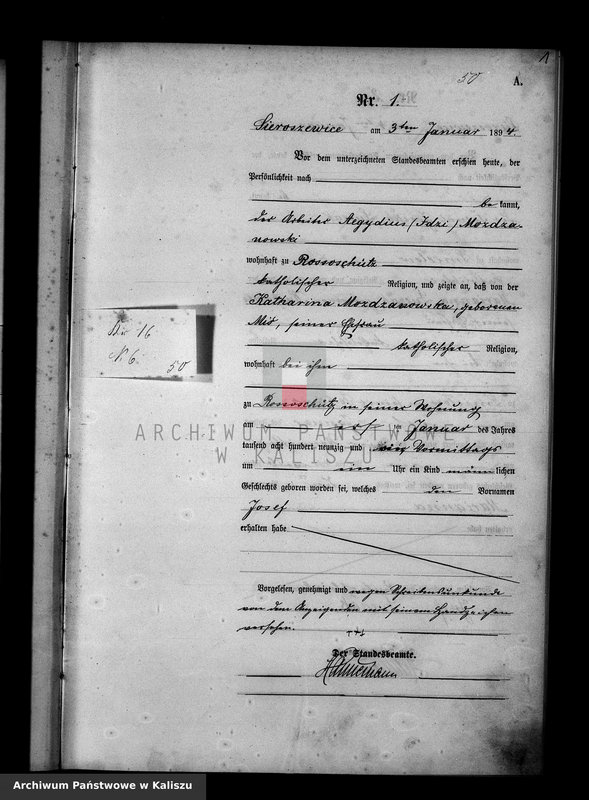 50
A.
1
Nr. 1.
Sieroszewice am 3ten Januar 1894.
Vor dem unterzeichneten Standesbeamten erschien heute, der
Persönlichkeit nach
be kannt,
der Arbeiter Aegydius (Idzi) Mozdza-
nowski
wohnhaft zu Rossoschütz
katholischer Religion, und zeigte an, daß von der
Katharina Mozdzanowska, geborenen
seiner Ehefrau
katholischer Religion,
wohnhaft bei ihm
zu Rossoschütz in seiner Wohnung
am ersten Januar des Jahres
tausend acht hundert neunzig und Vormittags
um ein Uhr ein Kind männlichen
Geschlechts geboren worden sei, welches den Vornamen
Josef
erhalten habe
Vorgelesen, genehmigt und wegen Schreibensunkunde
von dem Anzeigenden mit seinem Handzeichen
versehen.
+++
Der Standesbeamte.
16
N. 6.
50
ARCHIWUM PAŃSTWOWE
W KALISZU
Archiwum Państwowe w Kaliszu